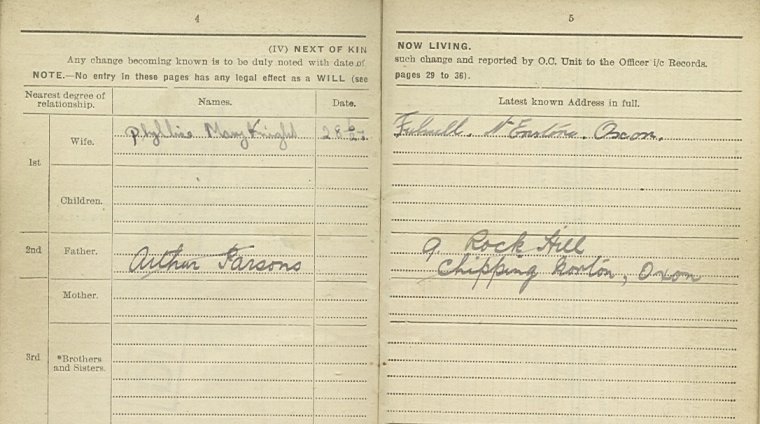 4
(IV) NEXT OF KIN
Any change becoming known is to be duly noted with date of
NOTE.—No entry in these pages has any legal effect as a WILL (see
Nearest degree of relationship.
Names.
Date.
1st
Wife.
Mary Knight
Children.
2nd
Father.
Arthur Parsons
Mother.
3rd
*Brothers and Sisters.
5
NOW LIVING.
such change and reported by O.C. Unit to the Officer i/c Records.
pages 29 to 36).
Latest known Address in full.
Oxon.
9 Rock Hill
Chipping Norton, Oxon